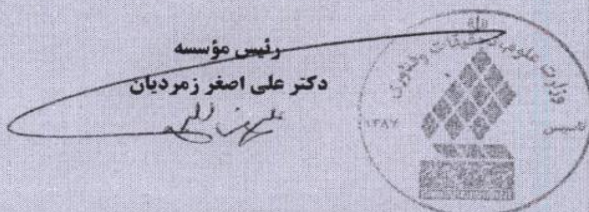 رئیس مؤسسه
دکتر علی اصغر زمردیان
وزارت علوم، تحقیقات و فناوری
تاسیس
۱۳۸۷